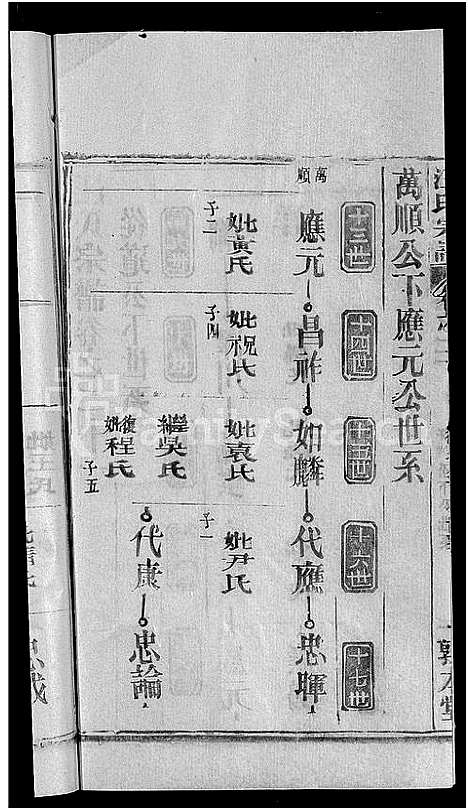 萬順公下應元公世系
十三世
十四世
十五世
十六世
十七世
萬順
應元
昌祚
如麟
代應
忠暉
妣黃氏
子二
妣祝氏
子四
妣袁氏
妣尹氏
子一
繼吳氏
復妣程氏
子五
代康
忠論
敦本堂
FamilySearch